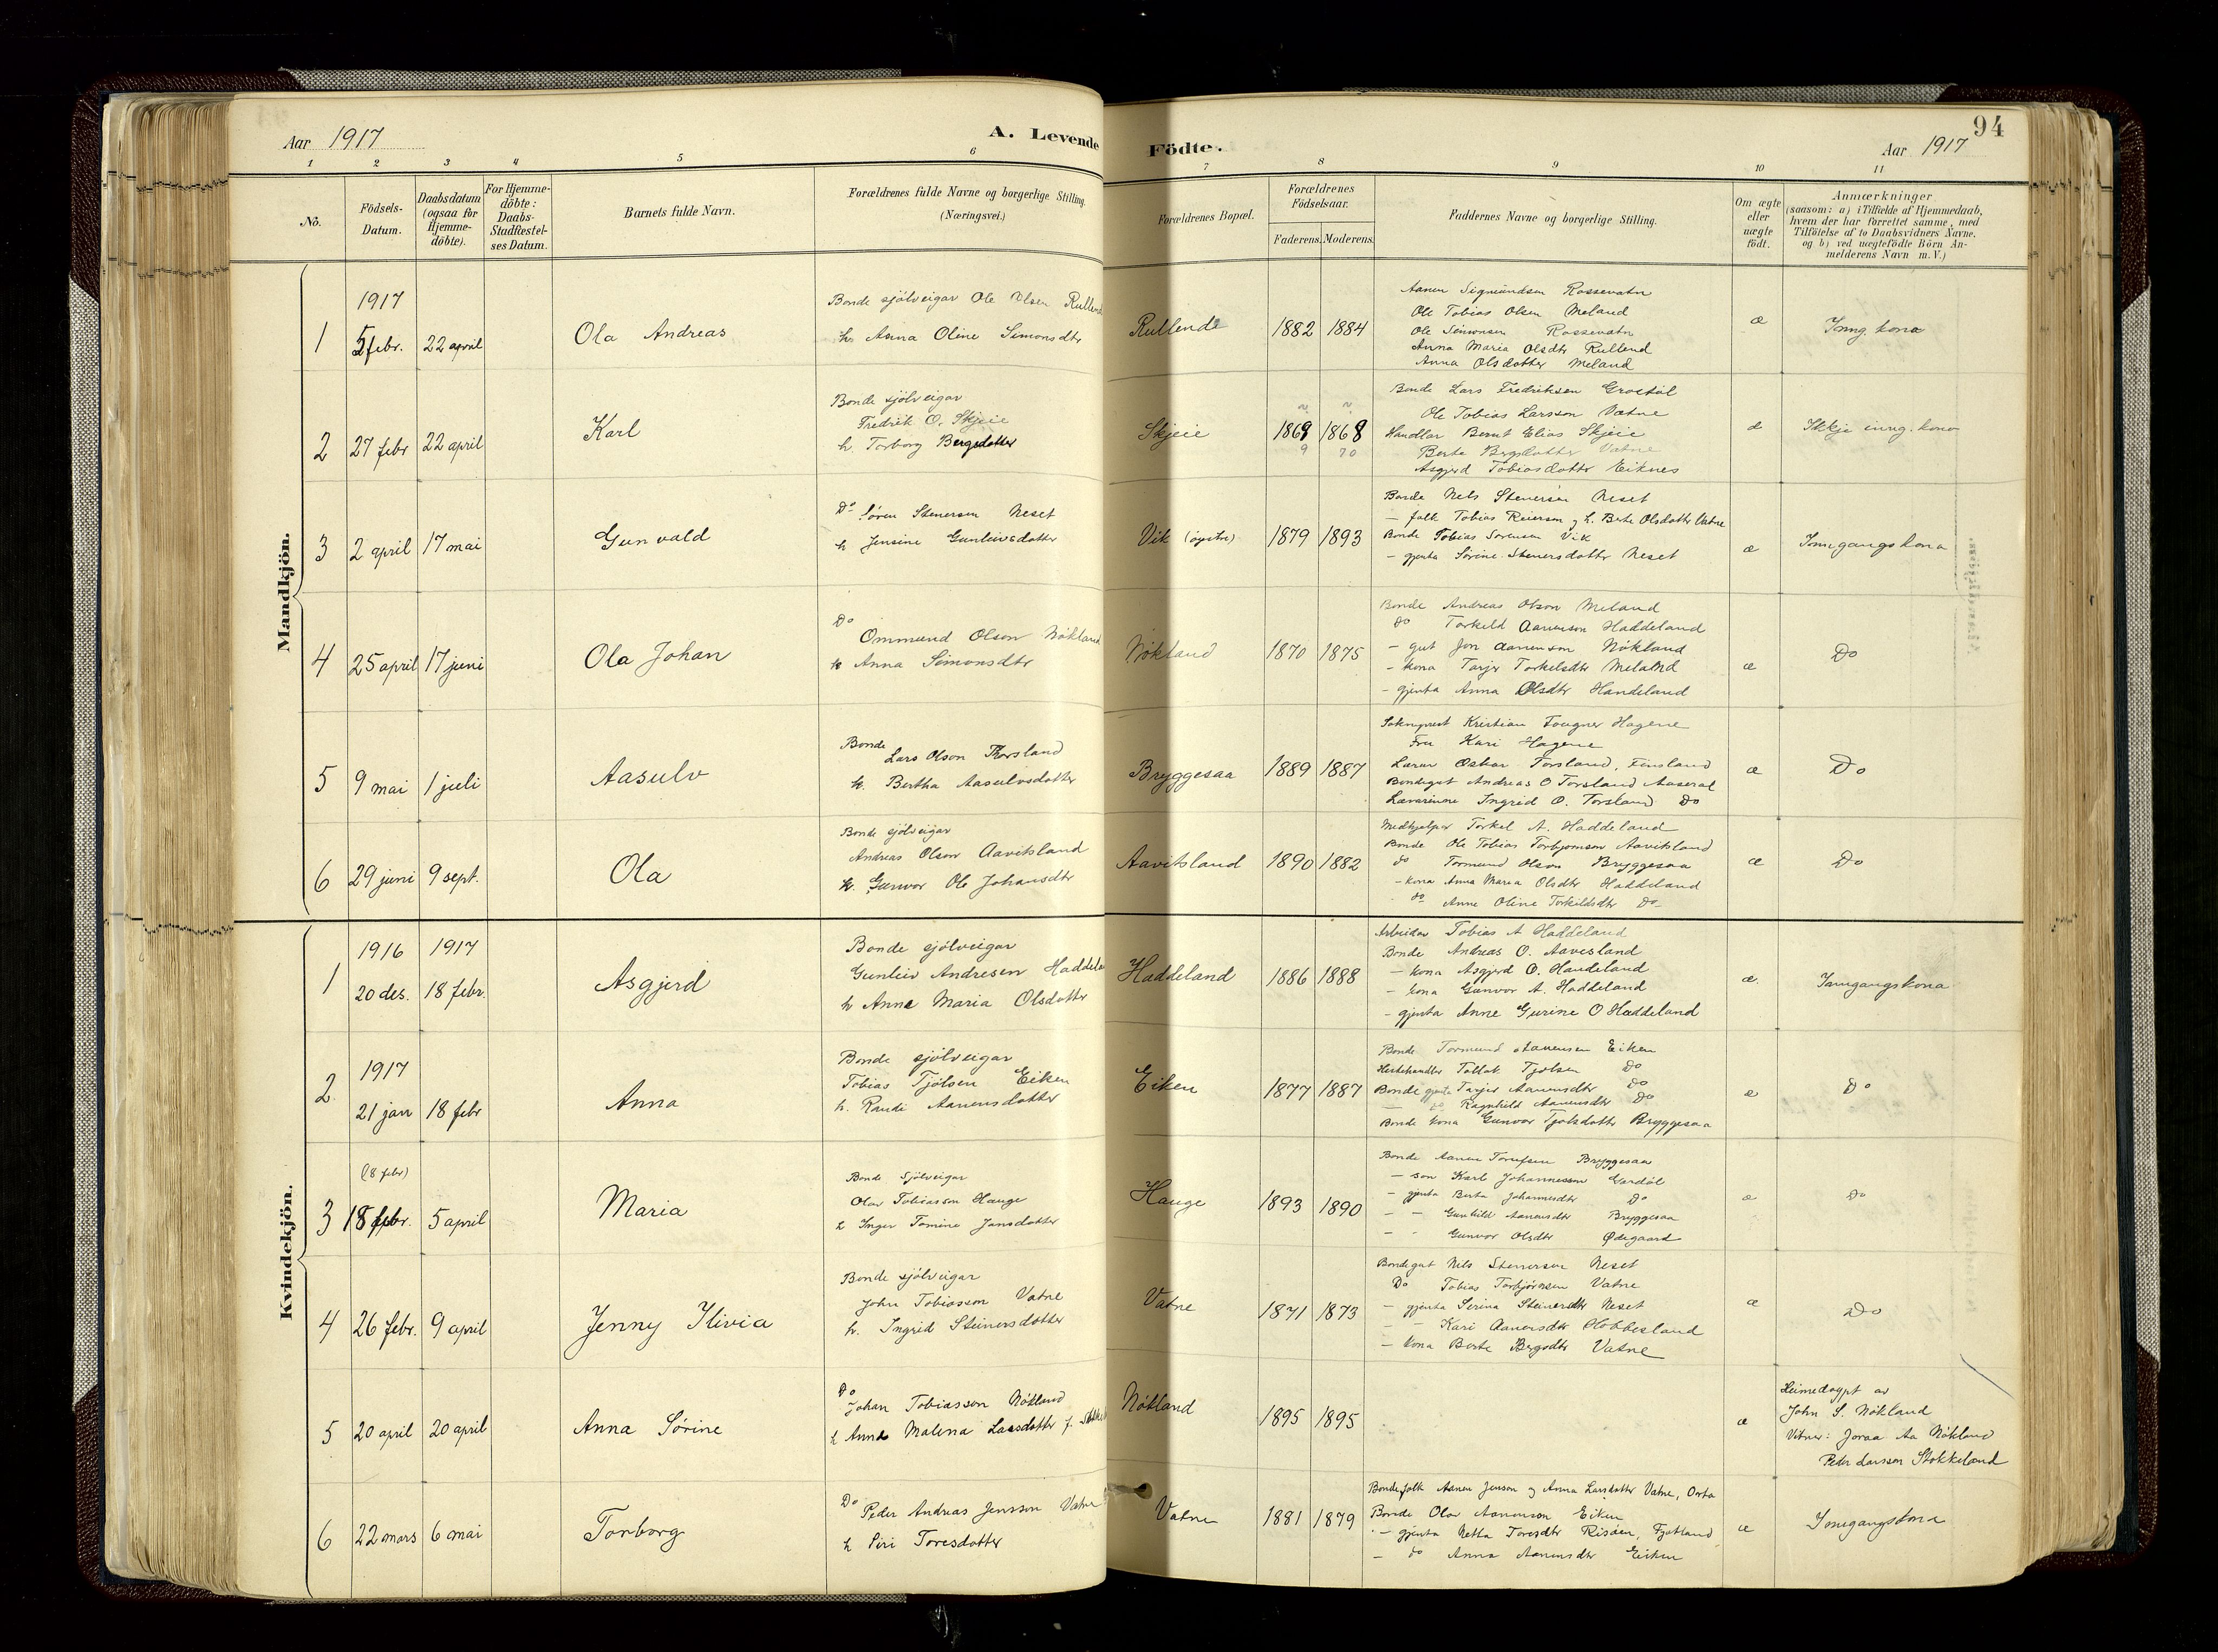 94
Aar 1917
A. Levende Födte.
Aar 1917
1 2 3 4 5 6 7 8 9 10 11
No.
Födsels-Datum.
Daabsdatum (ogsaa for Hjemme-döbte).
For Hjemme-döbte: Daabs-Stadfæstel-ses Datum.
Barnets fulde Navn.
Forældrenes fulde Navne og borgerlige Stilling. (Næringsvei.)
Forældrenes Bopæl.
Forældrenes Födselsaar.
Faderens. Moderens.
Faddernes Navne og borgerlige Stilling.
Om ægte eller uægte födt.
Anmærkninger
(saasom: a) i Tilfælde af Hjemmedaab, hvem der har forrettet samme, med Tilföielse af to Daabsvidners Navne, og b) ved uægtefödte Börn An-melderens Navn m.V.)
Mandkjön.
1917
1 5 febr. 22 april
Ola Andreas
Bonde sjölveigar Ole Olsen Rullend
h. Anna Oline Simonsdtr
Rullende
1882 1884
Aanen Sigmundsen Rossevatn
Ole Tobias Olsen Meland
Ole Simonsen Rossevatn
Anna Maria Olsdtr Rullend
Anna Olsdotter Meland
æ
Inng. kona
2 27 febr 22 april
Karl
Bonde sjölveigar
Fredrik O. Skjeie
h. Torborg Bergsdotter
Skjeie
1869 1868
9 70
Bonde Lars Fredriksen
Ole Tobias Larsson Vatne
Handlar Bernt Elias Skjeie
Berte Bergsdotter Vatne
Asgjerd Tobiasdottr Eiknes
Ikkje inng. kona
3 2 april 17 mai
Gunvald
Do Sören Stenersen Neset
h Jensine Gunleivsdotter
Vik (öystre)
1879 1893
Bonde Nels Stenersen Neset
- folk Tobias Reierson og h. Berte Olsdotter Vatne
Bonde Tobias Sorensen Vik
- gjenta Sørine Stenersdotter Neset
æ
Inngangskona
4 25 april 17 juni
Ola Johan
Do
Ommund Olson Nökland
h Anna Simonsdtr
Nökland
1870 1875
Bonde Andreas Olson Meland
do Torkild Aanenson Haddeland
- gut Jon Aanenson Nökland
- kona Tarjer Torkelsdtr Meland
- gjenta Anna Olsdtr Handeland
æ
Do
5 9 mai 1 juli
Aasulv
Bonde
Lars Olson Thorsland
h. Bertha Aasulvsdotter
Bryggesaa
1889 1887
Soknprest Kristian Fougner Hagene
Fru Kari Hagene
Lærar Oskar Torsland, Finsland
Bondegut Andreas O Torsland Aaseral
Lærarinne Ingrid O. Torsland Do
æ
Do
6 29 juni 9 sept.
Ola
Bonde sjölveigar
Andreas Olson Aavitsland
h. Gunvor Ole Johansdtr
Aavitsland
1890 1882
Medhjelpar Torkel A. Haddeland
Bonde Ole Tobias Torbjornson Aavitsland
do Tormund Olson Bryggesaa
- kona Anna Maria Olsdtr Haddeland
do Anne Oline Torkildsdtr Do
æ
Do
Kvindekjön.
1916 1917
1 20 des. 18 febr.
Asgjerd
Bonde sjölveigar
Gunleiv Andresen Haddela
h Anna Maria Olsdotter
Haddeland
1886 1888
Arbeidar Tobias A Haddeland
Bonde Andreas O. Aavesland
- kona Asgjerd O. Handeland
- kona Gunvor A. Haddeland
- gjenta Anne Gurine O Haddeland
æ.
Inngangskona
1917
2. 21 jan 18 febr
Anna
Bonde sjölveigar
Tobias Tjölsen Eiken
h. Randi Aanensdotter
Eiken
1877 1887
Bonde Tormund Aanensen Eiken
Hestehandler Tollak Tjølsen Do
Bonde gjenta Tarjer Aanensdtr Do
- do Ragnhild Aanensdtr Do
Bonde kona Gunvor Tjølsdotter Bryggesaa
æ
Do
(8 febr)
3 18 febr. 5 april
Maria
Bonde Sjölveigar
Olav Tobiasson Hauge
h Inger Tomine Jonsdotter
Hauge
1893 1890
Bonde Aanen Bryggesaa
- son Karl Johannesson
- gjenta Berta Johannesdtr Do
- - Gunhild Aanensdtr Bryggesaa
- - Gunvor Olsdtr Ødegaard
æ
Do
4 26 febr. 9 april
Jenny Ilivia
Bonde sjölveigar
John Tobiasson Vatne
h. Ingrid Steinersdotter
Vatne
1871 1873
Bondegut Nils Stenerson Neset
Do Tobias Torbjørnsen Vatne
- gjenta Serina Steinersdtr Neset
- Kari Aanensdtr
- kona Berte Bergsdtr Vatne
æ
Do
5 20 april 20 april
Anna Sörine
Do
Johan Tobiasson Nökland
h Anna Malena Larsdotter f.
Nökland
1895 1895
æ
Heimedøypt av
John S. Nökland
Vitner: Joraa Aa Nökland
Peder Larsson Stokkeland
6 22 mars 6 mai
Torborg
Do Peder Andreas Jensson Vatne
h Siri Toresdotter
Vatne
1881 1879
Bondefolk Aanen Jenson og Anna Larsdotter Vatne,
Bonde Olav Aanenson Eiken
- gjenta Netta Toresdtr Risden, Fjotland
- do Anna Aanensdtr Eiken
æ
Inngangskona